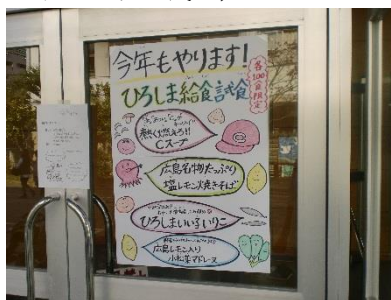 今年もやります!
ひろしま給食試食
各100食限定
熱く燃えろ!!
Cスープ
広島名物たっぷり
塩レモン焼きそば
ひろしまいい子いりこ
広島レモン入り
小松菜マドレーヌ